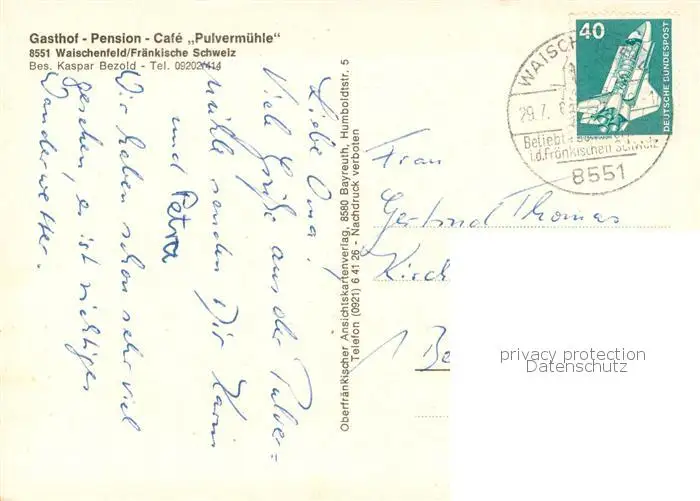 Gasthof - Pension - Café „Pulvermühle"
8551 Waischenfeld/Fränkische Schweiz
Bes. Kaspar Bezold - Tel. 09202/414
Liebe Oma!
Viele Grüße aus der Pulver=
mühle senden Dir Karin
und Petra
Wir haben schon sehr viel
gesehen, es ist richtiges
Wanderwetter.
Oberfränkischer Ansichtskartenverlag, 8580 Bayreuth, Humboldtstr. 5
Telefon (0921) 6 41 26 - Nachdruck verboten
40
DEUTSCHE BUNDESPOST
WAISCH
29.7.
Beliebt
i.d. Fränkischen Schweiz
8551
Frau
Gertrud Thomas
Kirch
1 Be
privacy protection
Datenschutz